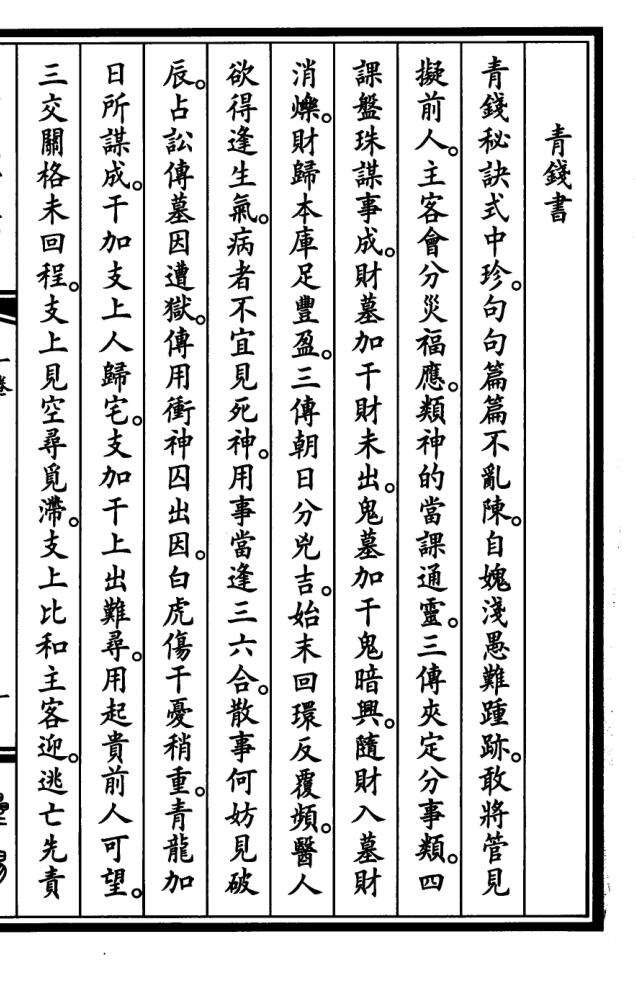 青錢書
青錢秘訣式中珍。句句篇篇不亂陳。自媿淺愚難踵跡。敢將管見
擬前人。主客會分災福應。類神的當課通靈。三傳夾定分事類。四
課盤珠謀事成。財墓加干財未出。鬼墓加干鬼暗興。隨財入墓財
消爍。財歸本庫足豐盈。三傳朝日分兇吉。始末回環反覆頻。醫人
欲得逢生氣。病者不宜見死神。用事當逢三六合。散事何妨見破
辰。占訟傳墓因遭獄。傳用衝神囚出因。白虎傷干憂稍重。青龍加
日所謀成。干加支上人歸宅。支加干上出難尋。用起貴前人可望。
三交關格未回程。支上見空尋覓滯。支上比和主客迎。逃亡先責
卷一
一